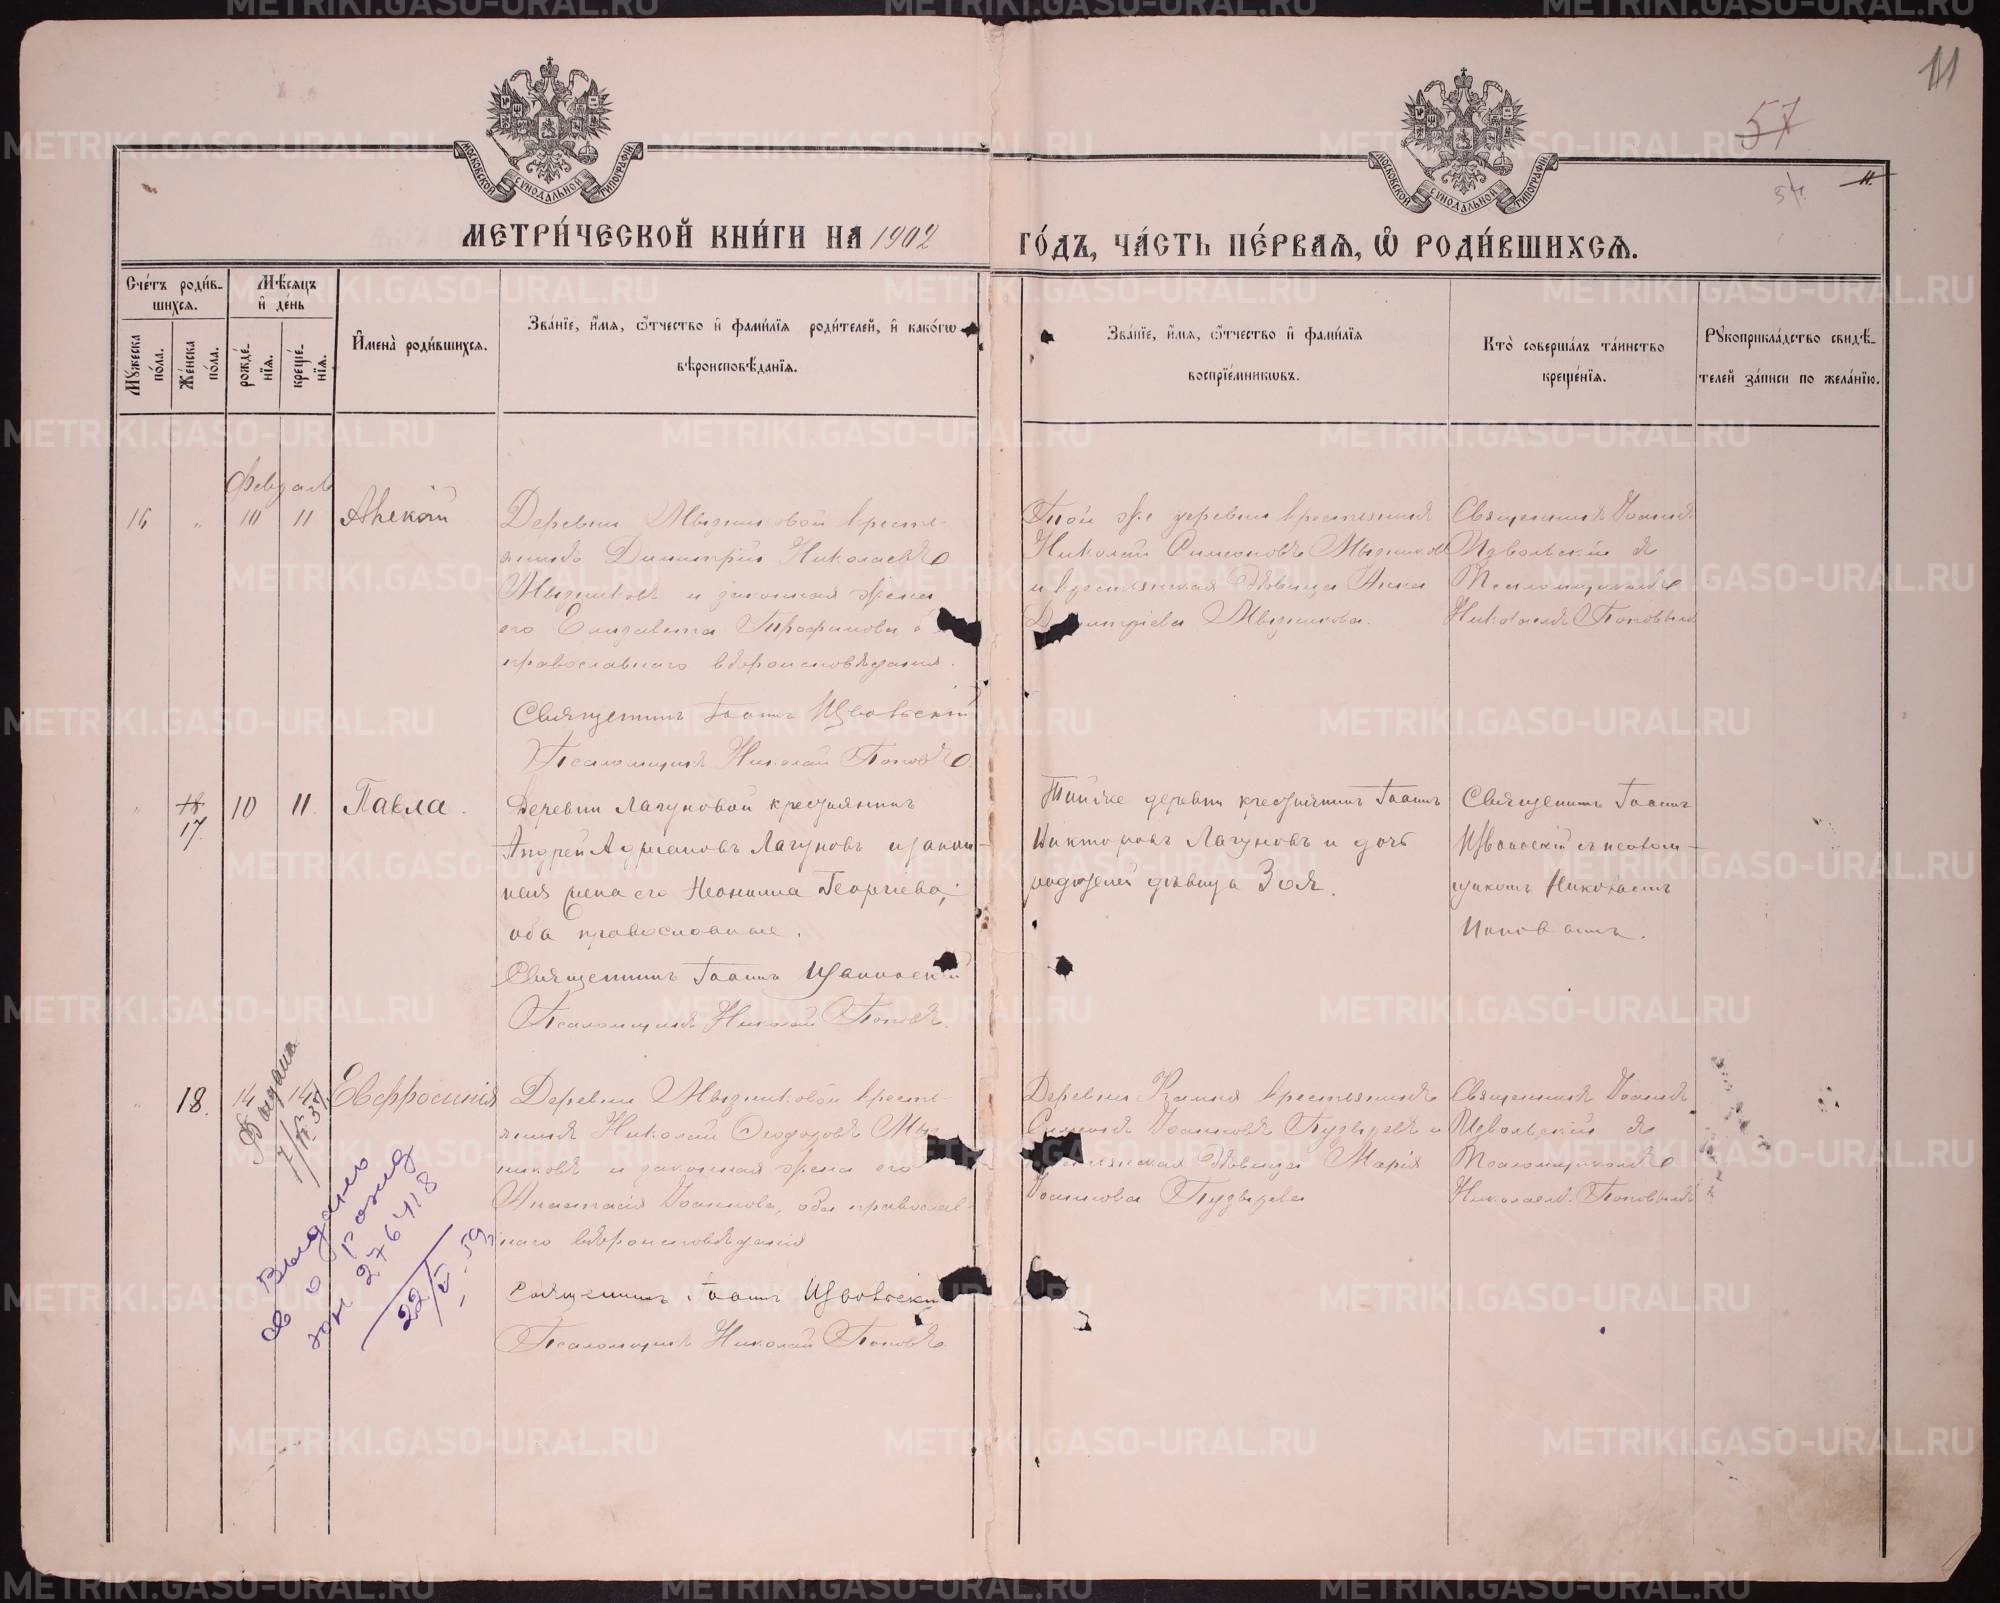 11
57
57.
11.
МОСКОВСКОЙ СѴНОДАЛЬНОЙ ТИПОГРАФІИ
МОСКОВСКОЙ СѴНОДАЛЬНОЙ ТИПОГРАФІИ
МЕТРИ́ЧЕСКОЙ КНИ́ГИ НА 1902 ГО́ДЪ, ЧА́СТЬ ПЕ́РВАЯ, Ѡ҆ РОДИ́ВШИХСЯ.
Сче́тъ роди́в-
шихся.
Мꙋ́жеска по́ла.
Же́нска по́ла.
Мѣ́сяцъ и҆ де́нь
рожде́-нїя.
креще́-нїя.
И҆мена̀ роди́вшихся.
Зва́нїе, и҆́мя, ѻ҆́тчество и҆ фами́лїя роди́телей, и҆ како́гѡ
вѣроисповѣ́данїя.
Зва́нїе, и҆́мя, ѻ҆́тчество и҆ фами́лїя
воспрїе́мникѡвъ.
Кто̀ соверша́лъ та́инство
креще́нїя.
Рꙋкоприкла́дство свидѣ́-
телей за́писи по жела́нїю.
Февраль
16 " 10 11 Алексій
Деревни Мызниковой крестья-
нинъ Димитрій Николаевъ
Мызниковъ и законная жена
его Елизавета Трофимова
православнаго вѣроисповѣданія.
Священникъ Іоаннъ Извольскій
Псаломщикъ Николай Поповъ.
Той же деревни крестьянинъ
Николай Симеоновъ Мызниковъ
и крестьянская вдовица Анна
Димитріева Мызникова.
Священникъ Іоаннъ
Извольскій съ
Псаломщикомъ
Николаемъ Поповымъ
" 18 17. 10 11. Павла.
Деревни Лагуновой крестьянинъ
Андрей Адріановъ Лагуновъ и закон-
ная жена его Неонилла Георгіева,
оба православные.
Священникъ Іоаннъ Изволь­скій
Псаломщикъ Николай Поповъ.
Той же деревни крестьянинъ Іоаннъ
Викторовъ Лагуновъ и дочь
родителей дѣвица Зоя.
Священникъ Іоаннъ
Извольскій съ псалом-
щикомъ Николаемъ
Поповымъ.
" 18. 14 14 Евфросинія
Деревни Мызниковой кресть-
янинъ Николай Ѳеодоровъ Мыз-
никовъ и законная жена его
Анастасія Іоаннова, оба православ-
наго вѣроисповѣданія
Священникъ Іоаннъ Извольскій
Псаломщикъ Николай Поповъ.
Деревни крестьянинъ
Симеонъ Іоанновъ и
крестьянская вдовица Марія
Іоаннова
Священникъ Іоаннъ
Извольскій съ
Псаломщикомъ
Николаемъ Поповымъ
Выдана
37
Выдано
св о рожд
276418
22/V-59
METRIKI.GASO-URAL.RU